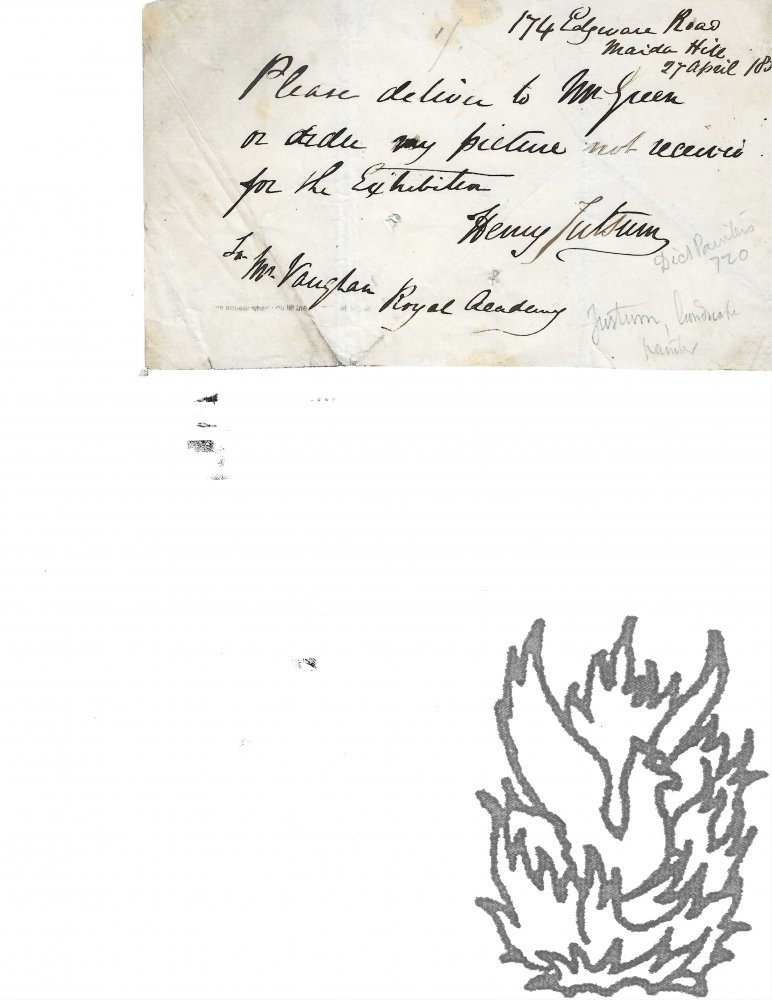 174 Edgware Road
Maida Hill
27 April 185
Please deliver to Mr Green
or order my picture not received
for the Exhibition
Henry Jutsum
To Mr Vaughan
Royal Academy
Dict Painters
720
Jutsum, landscape
painter